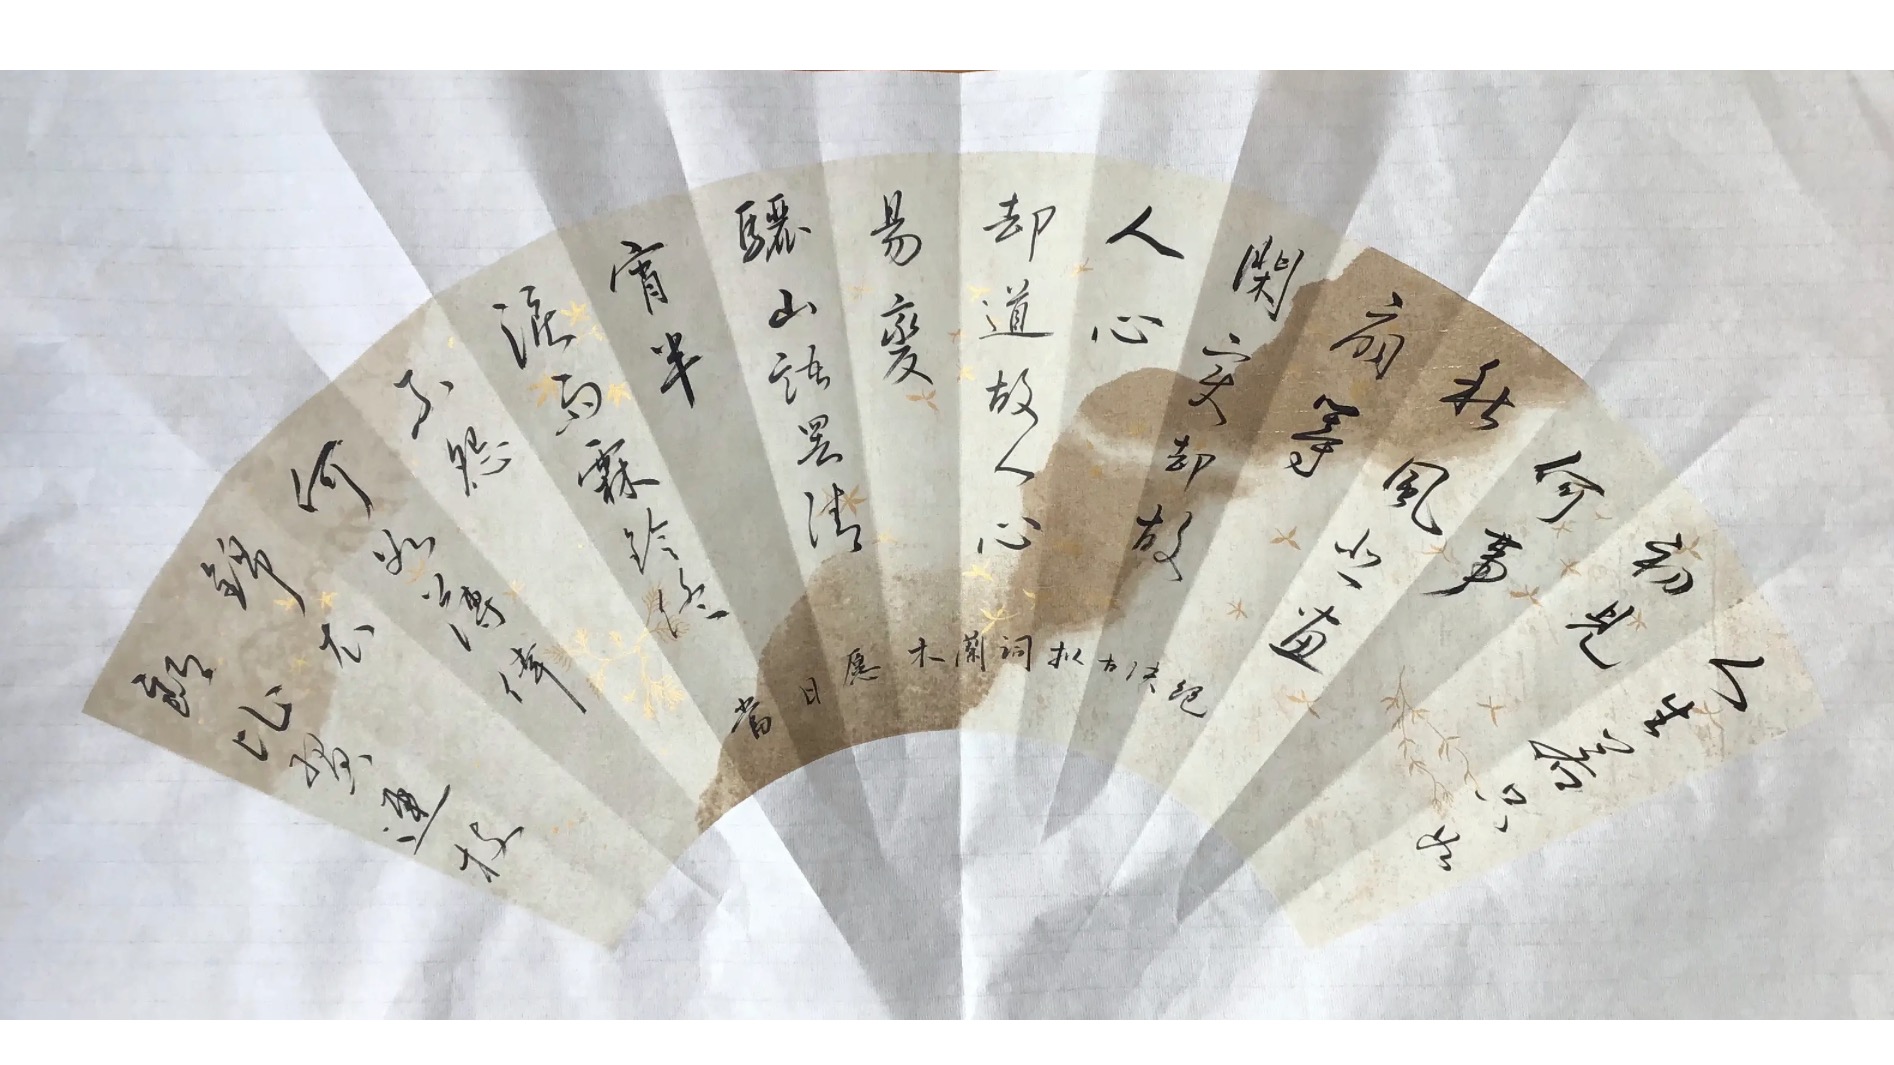 人生若只如
初見
何事
秋風悲畫
扇等
閑变却故
人心
却道故人心
易變
驪山語罷清
宵半
淚雨霖鈴終
不怨
何如薄倖
錦衣
郎比翼連枝
當日愿 木蘭詞拟古决绝